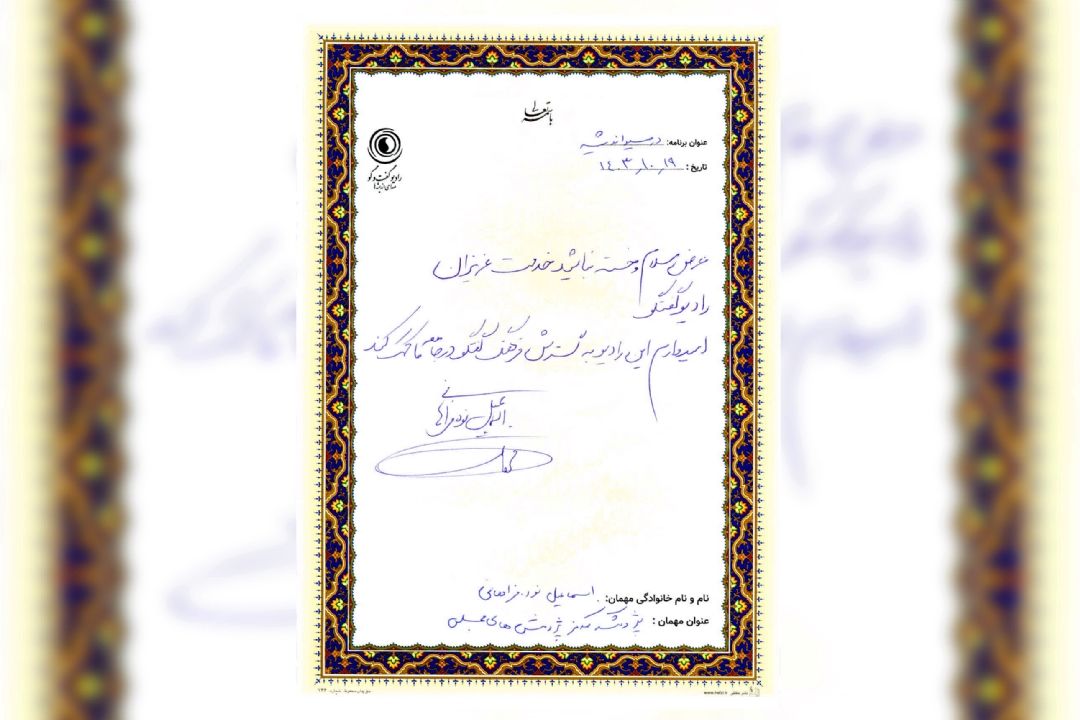 باسمه تعالی
عنوان برنامه: در مسیر اندیشه
تاریخ: ۱۴۰۳/۱۰/۱۹
رادیو گفت و گو
عرض سلام و خسته نباشید خدمت عزیزان
رادیو گفتگو
امیدوارم این رادیو به گسترش فرهنگ گفتگو در جامعه ما کمک کند
اسماعیل نوده فراهانی
نام و نام خانوادگی مهمان: اسماعیل نوده فراهانی
عنوان مهمان: پژوهشگر مرکز پژوهش های مجلس